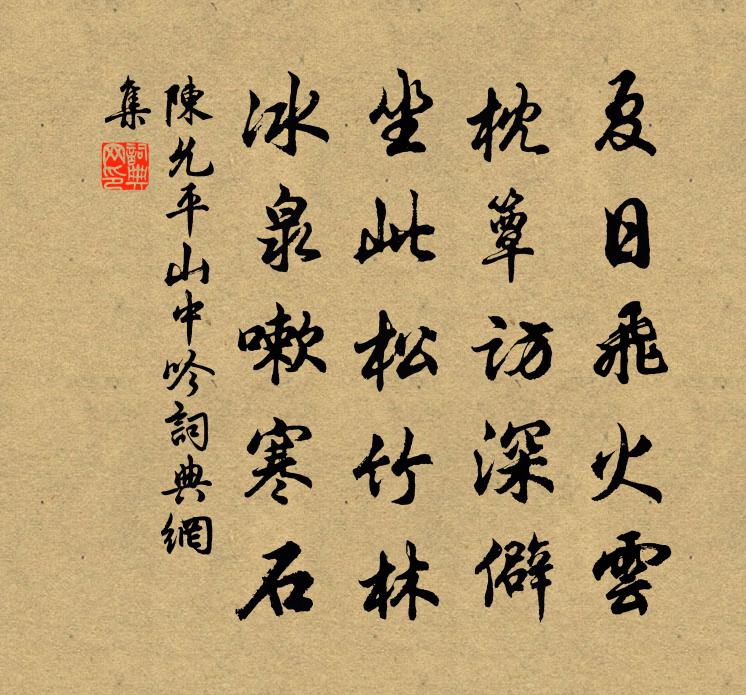 夏日飛火雲
枕簟訪深僻
坐此松竹林
冰泉嗽寒石
陳允平山中吟詞典網
集
詞典網印